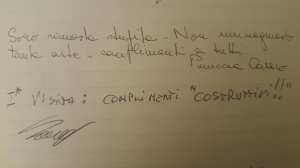 Sono rimasta stupita. Non immaginavo
tanta arte. complimenti a tutti
I° VISITA: COMPLIMENTI "COSTRUTTIVI"!!